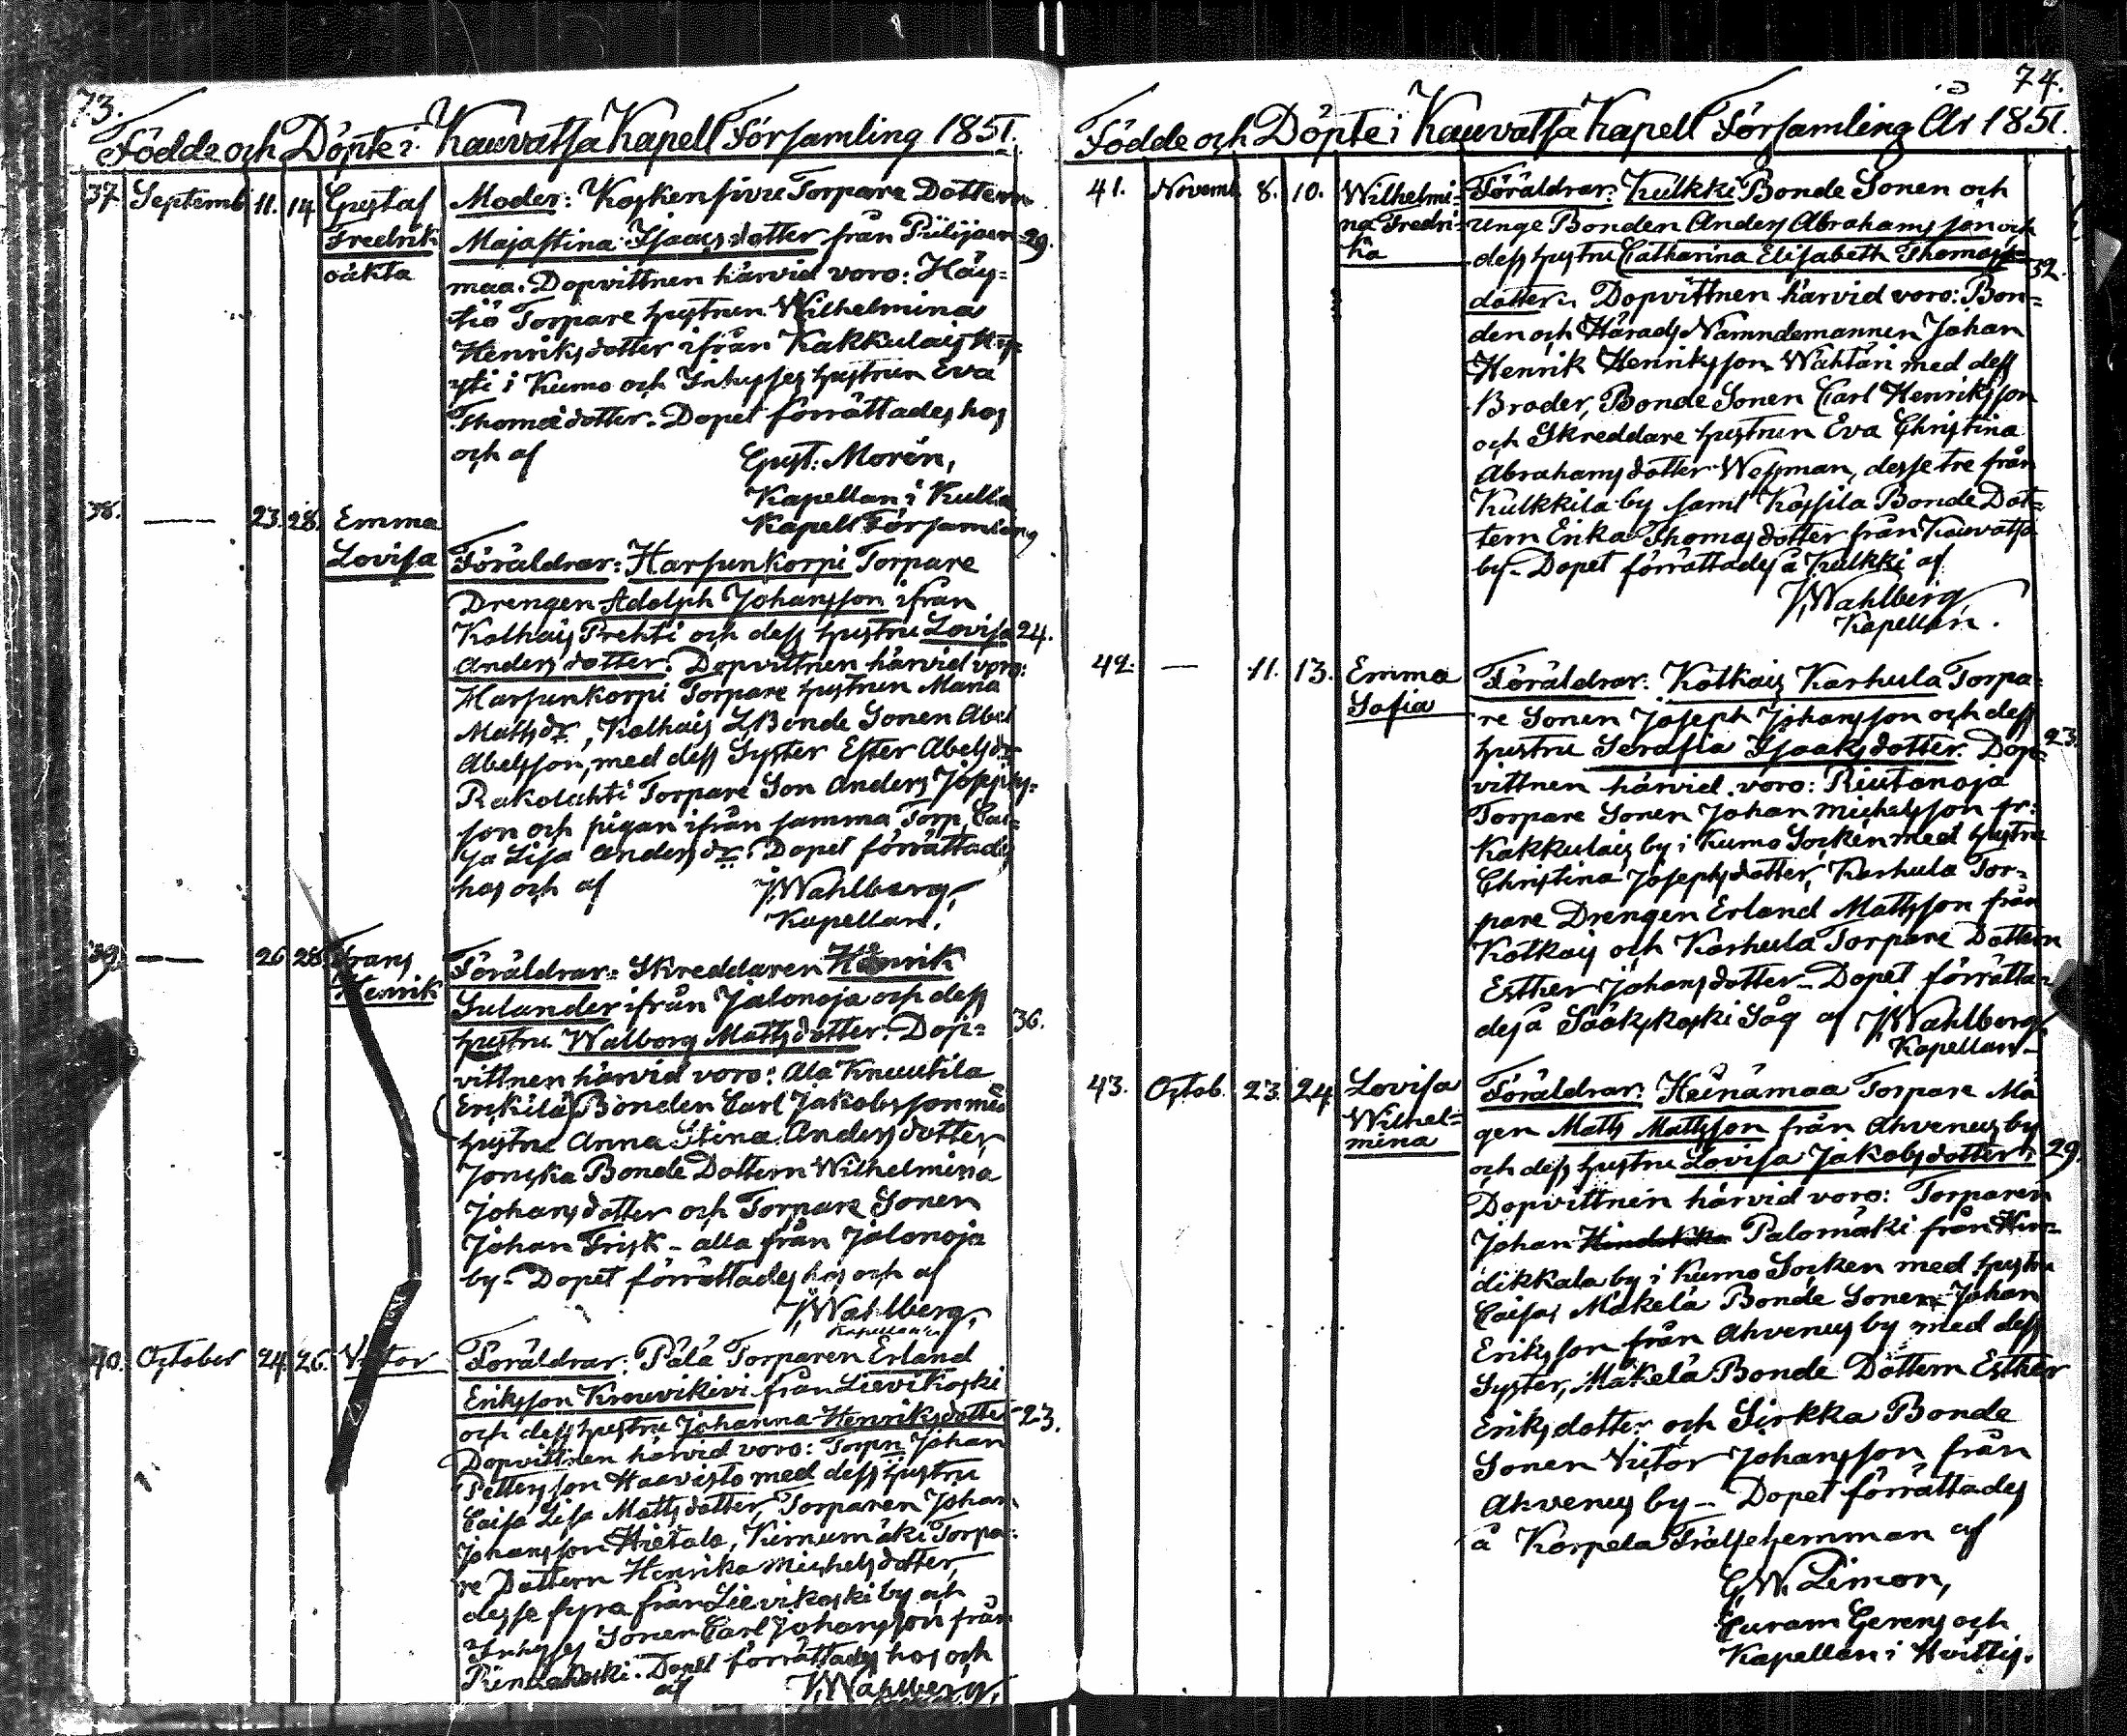 73.
Födde och Döpte i Kauvatsa Kapell Församling 1851.
37 Septemb 11. 14 Gustaf Fredrik oäkta
Moder: Koskensivu Torpare Dottern
Majastina Isaacsdotter från 29.
maa. Dopvittnen härvid voro: Häy-
tiö Torpare hustrun Wilhelmina
Henriksdotter ifrån Kakkulais
i Kumo och Inhysses hustrun Eva
Thomædotter. Dopet förrättades hos
och af Gust: Morén,
Kapellan i Kulla
Kapell Församling
38. — 23. 28. Emma Lovisa
Föräldrar: Harjunkorpi Torpare
Drengen Adolph Johansson ifrån
Kolhais Prehti och dess hustru Lovisa 24.
Andersdotter. Dopvittnen härvid voro:
Harjunkorpi Torpare hustrun Maria
Mattsdr, Kolhais Bonde Sonen Abel
Abelsson, med dess Syster Ester Abelsdr
Rakolahti Torpare Son Anders Josephs-
son och pigan ifrån samma Torp, Cai-
sa Lisa Andersdr. Dopet förrättades
hos och af J. Wahlberg,
Kapellan.
39. — 26 28 Frans Henrik
Föräldrar: Skreddaren Henrik
Sulander ifrån Jalonoja och dess
hustru Walborg Mattsdotter. Dop- 36.
vittnen härvid voro: Ala Knuutila
(Erikilä) Bonden Carl Jakobsson med
hustru Anna Stina Andersdotter,
Jonska Bonde Dottern Wilhelmina
Johansdotter och Torpare Sonen
Johan Frisk – alla från Jalonoja
by. Dopet förrättades hos och af
J. Wahlberg,
Kapellan
40. October 24. 26. Victor
Föräldrar: Pälä Torparen Erland
Eriksson Krouvikivi från Lievikoski
och dess hustru Johanna Henriksdotter 23.
Dopvittnen härvid voro: Torpn Johan
Pettersson Haavisto med dess hustru
Caisa Lisa Mattsdotter, Torparen Johan
Johansson Hietala, Kirnumäki Torpa-
re Dottern Henrika Michelsdotter,
desse fyra från Lievikoski by och
Inhysses Sonen Carl Johansson från
Dopet förrättades hos och
af J. Wahlberg,
74.
Födde och Döpte i Kauvatsa Kapell Församling År 1851.
41. Novemb 8. 10. Wilhelmi- na Fredri- ka
Föräldrar: Kulkki Bonde Sonen och
unge Bonden Anders Abrahamsson och
dess hustru Catharina Elisabeth Thomas- 32.
dotter. Dopvittnen härvid voro: Bon-
den och Härads Nämndemannen Johan
Henrik Henriksson Wähtäri med dess
Broder, Bonde Sonen Carl Henriksson
och Skreddare hustrun Eva Christina
Abrahamsdotter Wessman, desse tre från
Kulkkila by samt Kossila Bonde Dot-
tern Erika Thomasdotter från Kauvatsa
by. Dopet förrättades å Kulkki af
J. Wahlberg,
Kapellan.
42. — 11. 13. Emma Sofia
Föräldrar: Kolkais Karhula Torpa-
re Sonen Joseph Johansson och dess
hustru Serafia Isaaksdotter. Dop- 23.
vittnen härvid voro: Riutanoja
Torpare Sonen Johan Michelsson fr:
Kakkulais by i Kumo Socken med hustru
Christina Josephsdotter, Karhula Tor-
pare Drengen Erland Mattsson från
Kolkais och Karhula Torpare Dottern
Esther Johansdotter. Dopet förrätta-
des å Sääkskoski Såg af J. Wahlberg,
Kapellan
43. Octob 23. 24 Lovisa Wilhel- mina
Föräldrar: Heinämaa Torpare Må
gen Matts Mattsson från Ahvenus by
och dess hustru Lovisa Jakobsdotter. 29.
Dopvittnen härvid voro: Torparen
Johan Palomäki från Hin-
dikkala by i Kumo Socken med hustru
Caisa, Mäkelä Bonde Sonen Johan
Eriksson från Ahvenus by med dess
Syster, Mäkelä Bonde Dottern Esther
Eriksdotter och Sirkka Bonde
Sonen Victor Johansson från
Ahvenus by – Dopet förrättades
å Korpela Frälsehemman af
G. W. Limon,
Curam Gerens och
Kapellan i Hvittis.